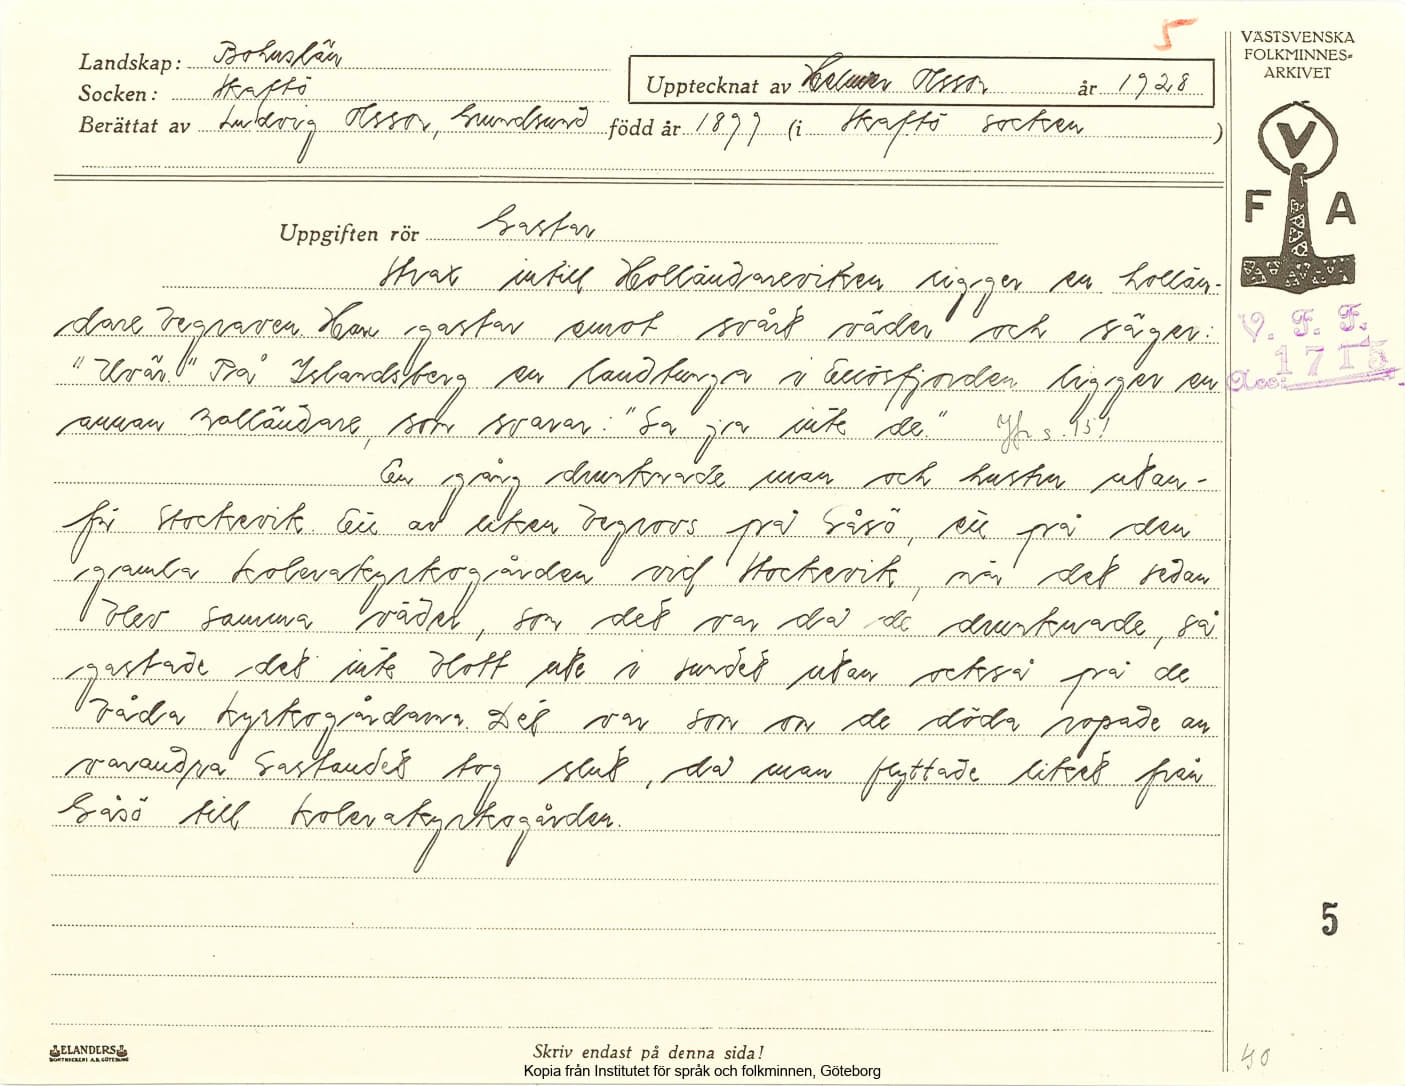 5
VÄSTSVENSKA
FOLKMINNES=
ARKIVET
Landskap: Bohuslän
Upptecknat av Helmer Olsson år 1928
Socken: Skaftö
Berättat av Ludvig Olsson, Grundsund född år 1877 (i Skaftö socken )
V
F A
Uppgiften rör Gastar
Strax intill Holländareviken ligger en hollän-
dare begraven. Han gastar emot svårt väder och säger:
"Uvär." På Islandsberg en landtunga i Ellösfjorden ligger en
annan holländare, som svarar: "Sa ja inte de." Jfr s. 15!
V. F. F.
Acc: 1715
En gång drunknade man och hustru utan-
för Stockevik. Ett av liken begrovs på Gåsö, ett på den
gamla kolerakyrkogården vid Stockevik, när det sedan
blev samma väder, som det var då de drunknade, så
gastade det inte blott ute i sundet utan också på de
båda kyrkogårdarna. Det var som om de döda ropade an
varandra Gastandet tog slut, då man flyttade liket från
Gåsö till kolerakyrkogården.
5
ELANDERS
BOKTRYCKERI A.B. GÖTEBORG
Skriv endast på denna sida!
Kopia från Institutet för språk och folkminnen, Göteborg
40